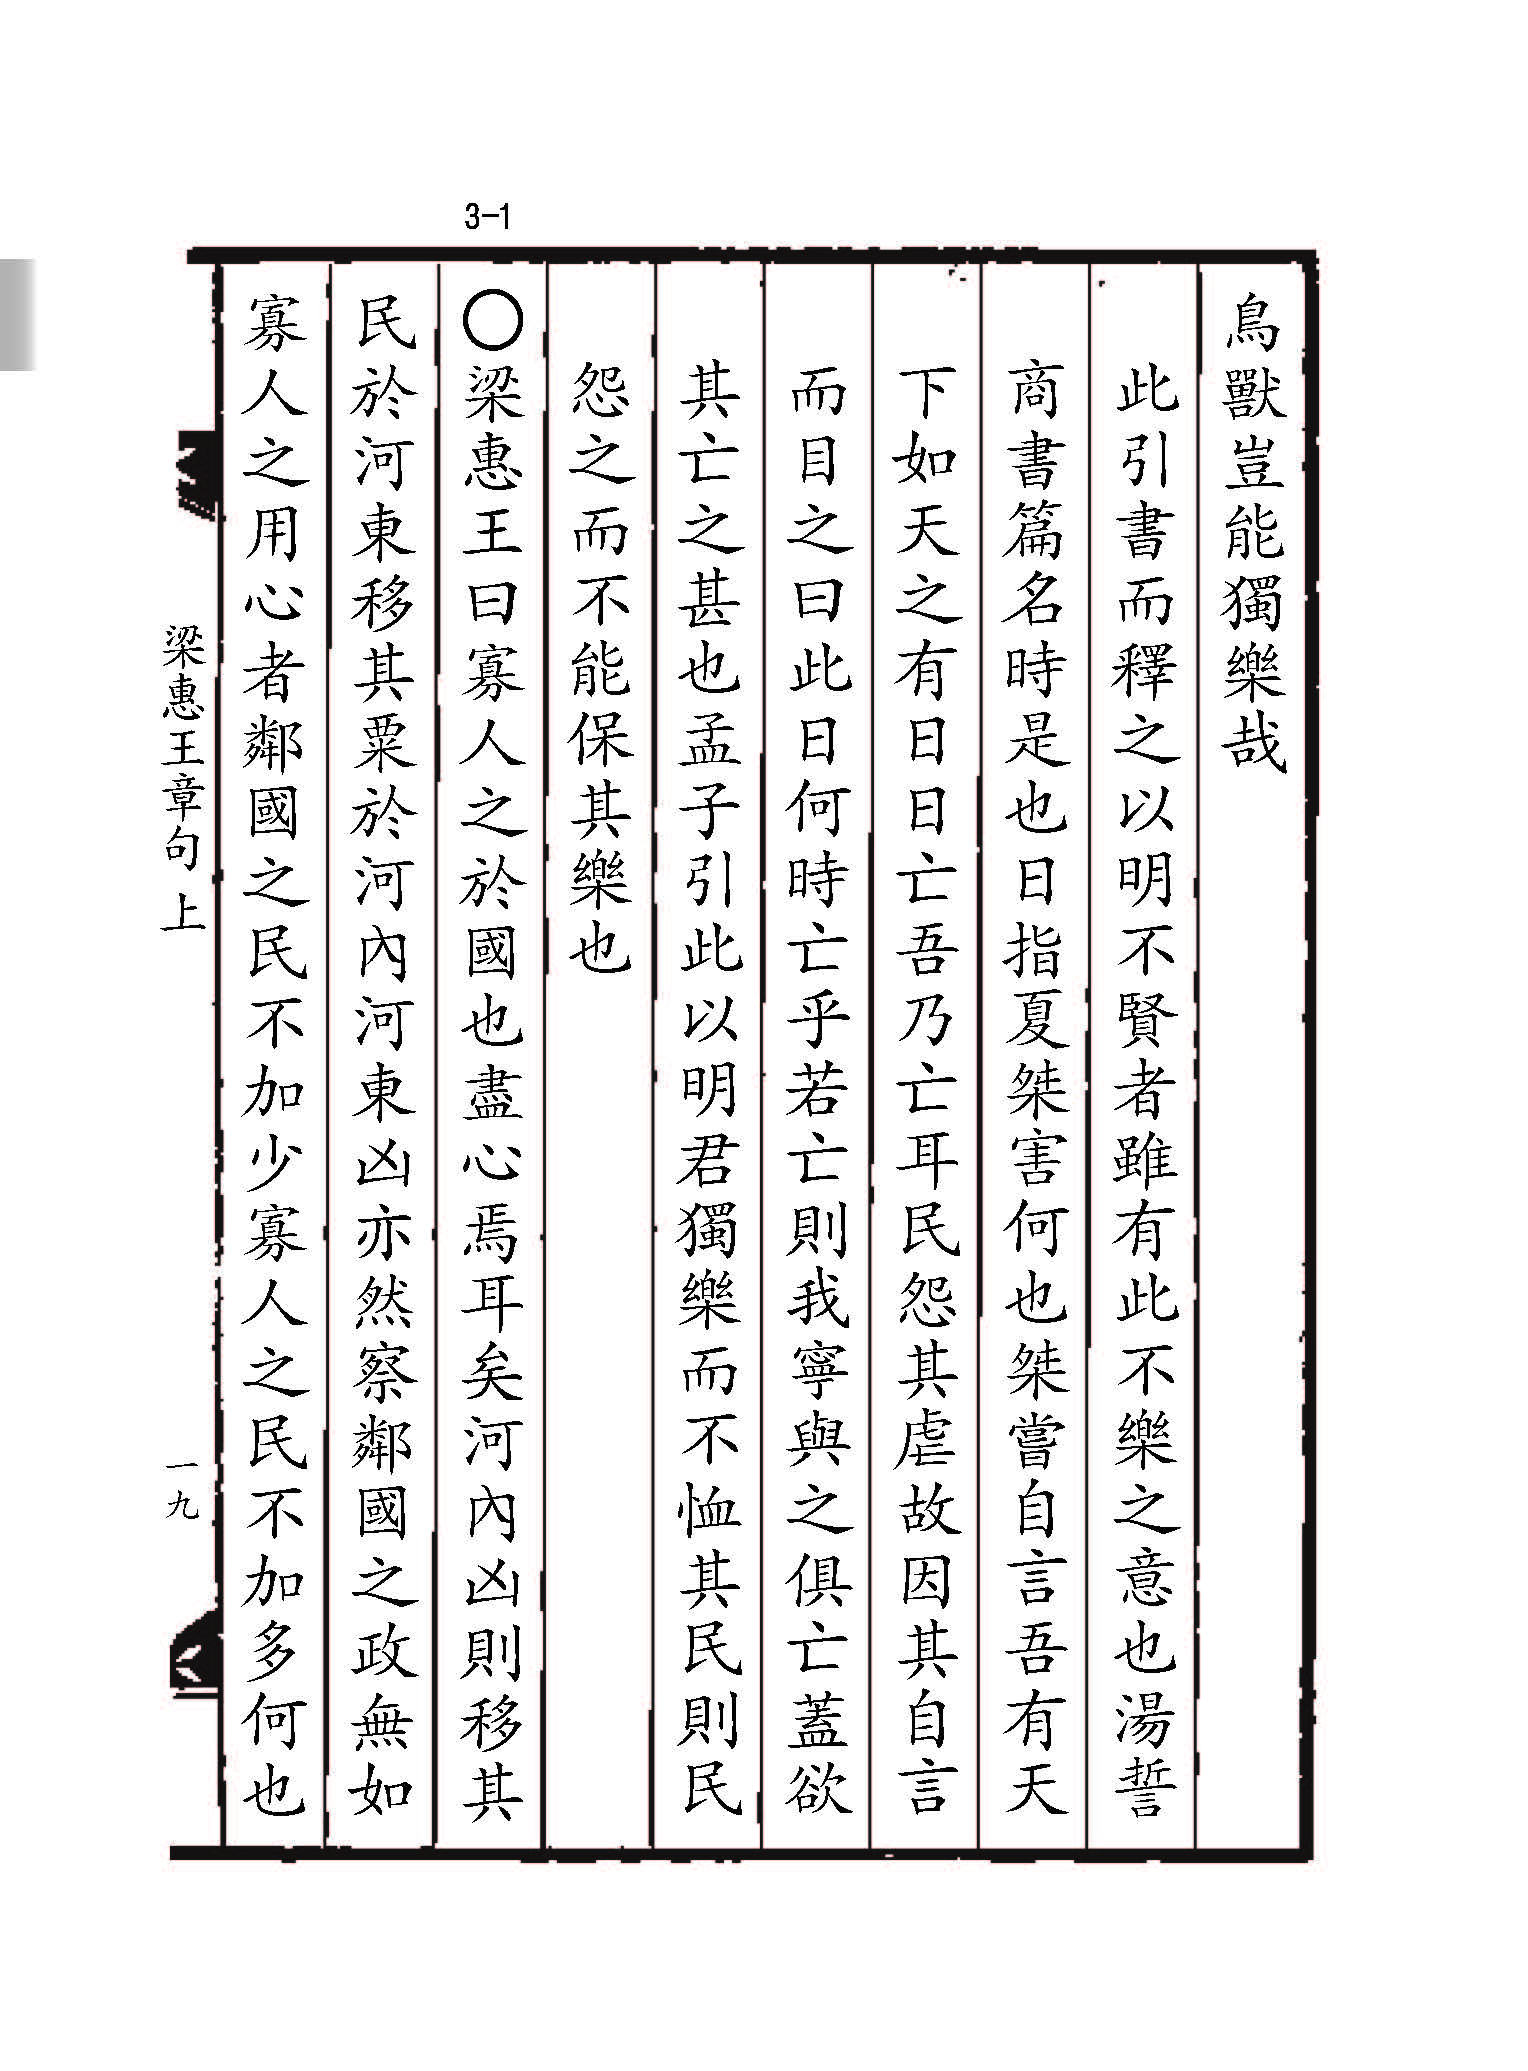 3-1
鳥獸豈能獨樂哉
此引書而釋之以明不賢者雖有此不樂之意也湯誓
商書篇名時是也日指夏桀害何也桀嘗自言吾有天
下如天之有日日亡吾乃亡耳民怨其虐故因其自言
而目之曰此日何時亡乎若亡則我寧與之俱亡蓋欲
其亡之甚也孟子引此以明君獨樂而不恤其民則民
怨之而不能保其樂也
○梁惠王曰寡人之於國也盡心焉耳矣河內凶則移其
民於河東移其粟於河內河東凶亦然察鄰國之政無如
寡人之用心者鄰國之民不加少寡人之民不加多何也
梁惠王章句上
一九